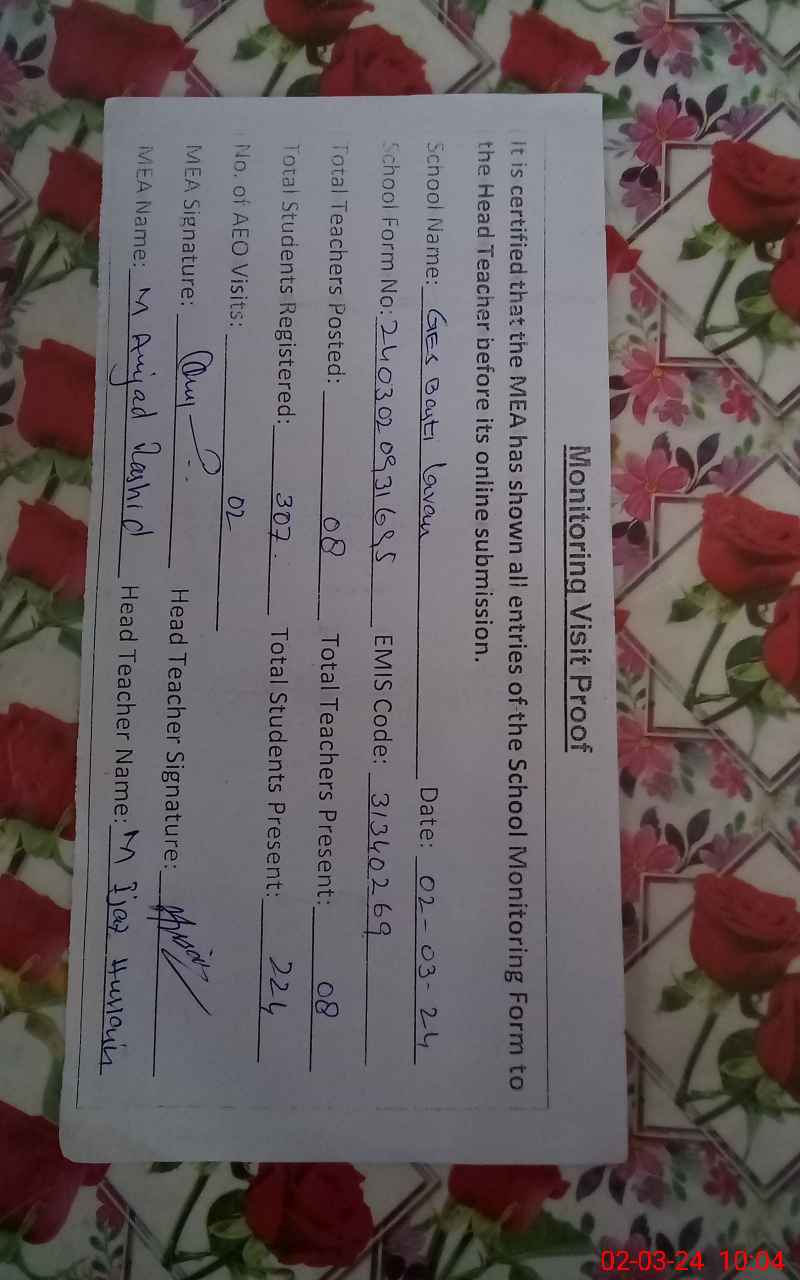 Monitoring Visit Proof
It is certified that the MEA has shown all entries of the School Monitoring Form to
the Head Teacher before its online submission.
School Name: GES Basti Date: 02-03-24
School Form No: EMIS Code: 31340269
Total Teachers Posted: 08 Total Teachers Present: 08
Total Students Registered: 307. Total Students Present: 224
No. of AEO Visits: 02
MEA Signature: Head Teacher Signature:
MEA Name: M Amjad Rashid Head Teacher Name: M Ijaz Hussain
02-03-24 10:04